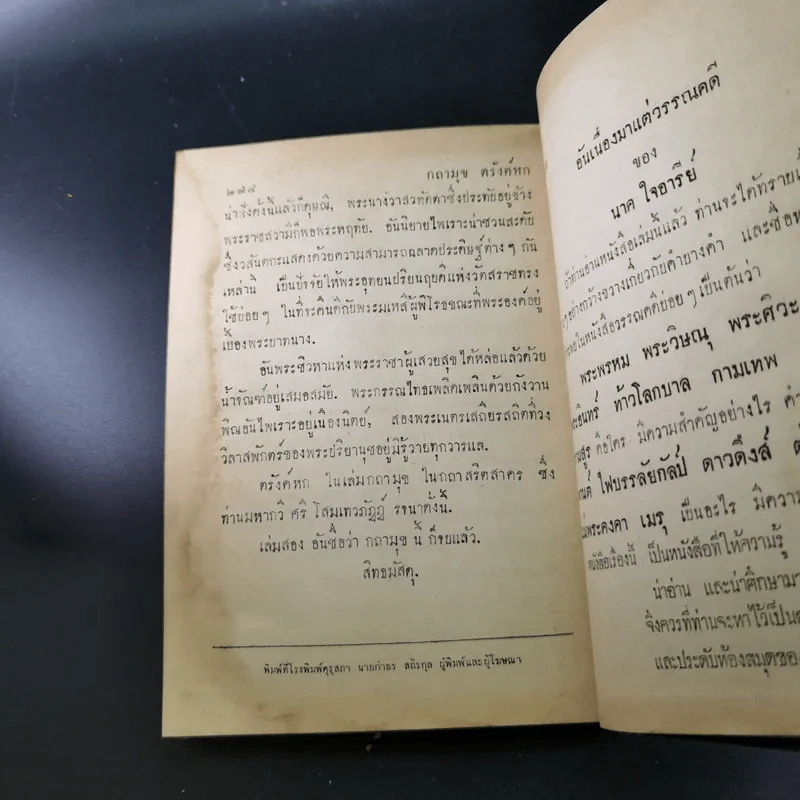 ๒๗๘
กถามุข ตรังค์หก
น่าฟังดั่งนี้แล้วก็ดุษณี, พระนางวาสวทัตตาซึ่งประทับอยู่ข้าง
พระราชสวามีก็พอพระหฤทัย. อันนิยายไพเราะน่าชวนสะดับ
ซึ่งวสันตกะแสดงด้วยความสามารถฉลาดประดิษฐ์ต่าง ๆ กัน
เหล่านี้ เป็นปัจจัยให้พระอุทยนปริยนฤบดีแห่งวัตสราชทรง
ใช้บ่อย ๆ ในที่จะคืนดีกับพระมเหสีผู้พิโรธขณะที่พระองค์อยู่
เบื้องพระบาทนาง.
อันพระชิวหาแห่งพระราชาผู้เสวยสุขได้หล่อแล้วด้วย
น้ำจัณฑ์อยู่เสมอสมัย. พระกรรณไทยเพลิดเพลินด้วยกังวาน
พิณอันไพเราะอยู่เนืองนิตย์, สองพระเนตรเสถียรสถิตที่วง
วิลาสพักตร์ของพระปริยานุชอยู่มิรู้วายทุกวารแล.
ตรังค์หก ในเล่มกถามุข ในกถาสริตสาคร ซึ่ง
ท่านมหากวี ศรี โสมเทวภัฏฏ์ รจนาดั่งนี้.
เล่มสอง อันชื่อว่า กถามุข นี้ ก็จบแล้ว.
สิทธมัสตุ.
พิมพ์ที่โรงพิมพ์คุรุสภา นายกำธร สถิรกุล ผู้พิมพ์และผู้โฆษณา
อันเนื่องมาแต่วรรณคดี
ของ
นาค ใจอารีย์
ถ้าท่านอ่านหนังสือเล่มนี้แล้ว ท่านจะได้ทราย
ๆ อย่างกว้างขวางเกี่ยวกับคำบางคำ และชื่อ
ในหนังสือวรรณคดีบ่อย ๆ เป็นต้นว่า
พระพรหม พระวิษณุ พระศิวะ
ท้าวโลกบาล กามเทพ
คือใคร มีความสำคัญอย่างไร คำ
ไฟบรรลัยกัลป์ ดาวดึงส์
พระคงคา เมรุ เป็นอะไร มีความ
หนังสือเรื่องนี้ เป็นหนังสือที่ให้ความรู้
น่าอ่าน และน่าศึกษามา
จึงควรที่ท่านจะหาไว้เป็น
และประดับห้องสมุดของ